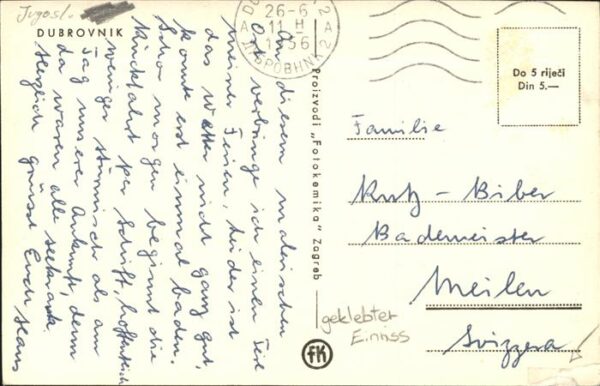 Jugosl.
DUBROVNIK
26-6
11 H
1956
A 2
2 A
ДУБРОВНИК
An diesem malerischen
Ort verbringe ich einen Teil
meiner Ferien, leider ist
das Wetter nicht ganz gut,
konnte erst einmal baden.
Schon morgen beginnt die
Rückfahrt per Schiff, hoffentlich
weniger stürmisch als am
Tag unserer Ankunft, denn
da waren alle seekrank.
Herzlich grüsst Euch Hans
Proizvodi „Fotokemika" Zagreb
fK
Do 5 riječi
Din 5.—
Familie
Kutz - Biber
Bademeister
Meilen
Svizzera!
geklebter
Einriss